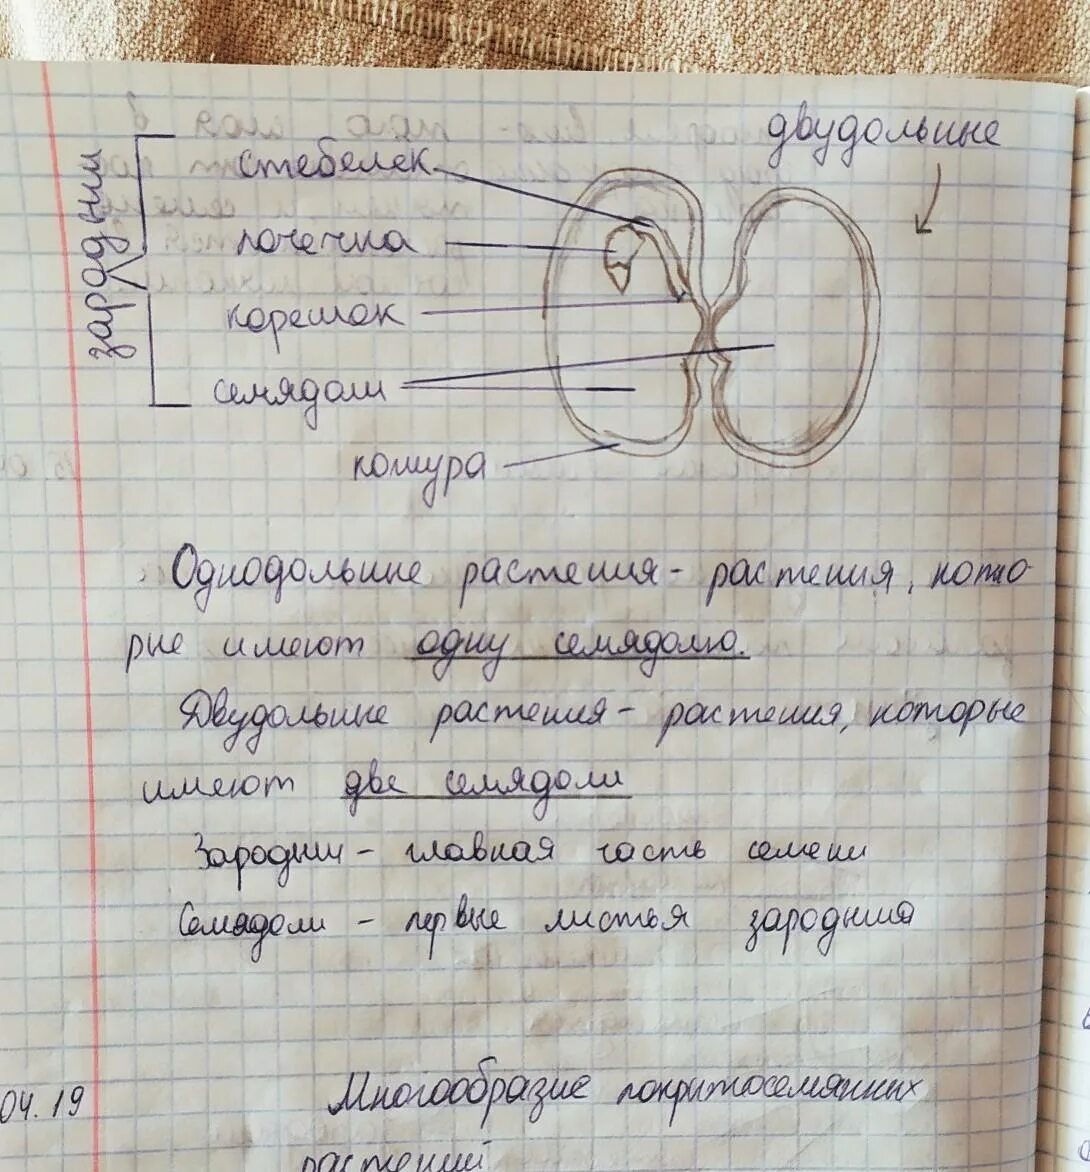 двудольные
зародыш
стебелек
почечка
корешок
семядоли
кожура
Однодольные растения - растения, кото-
рые имеют одну семядолю.
Двудольные растения - растения, которые
имеют две семядоли
Зародыш - главная часть семени
Семядоли - первые листья зародыша
04.19 Многообразие покрытосеменных
растений